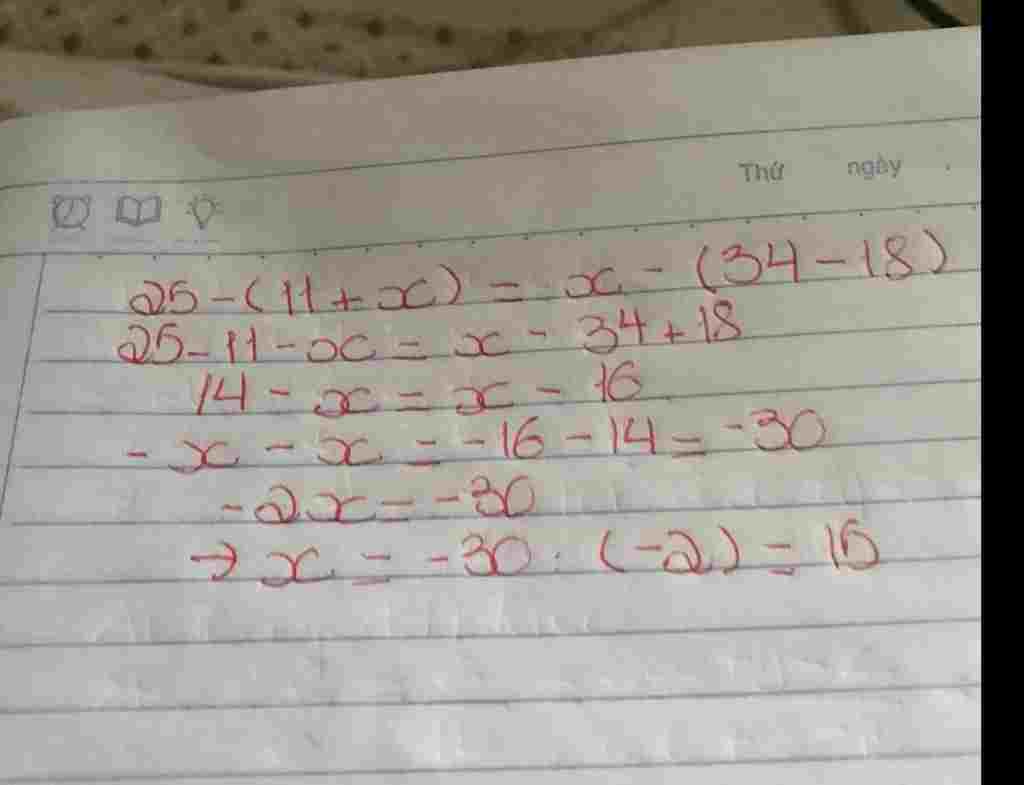 Thứ ngày
25 - (11 + x) = x - (34 - 18)
25 - 11 - x = x - 34 + 18
14 - x = x - 16
- x - x = -16 - 14 = -30
-2x = -30
→ x = -30 : (-2) = 15